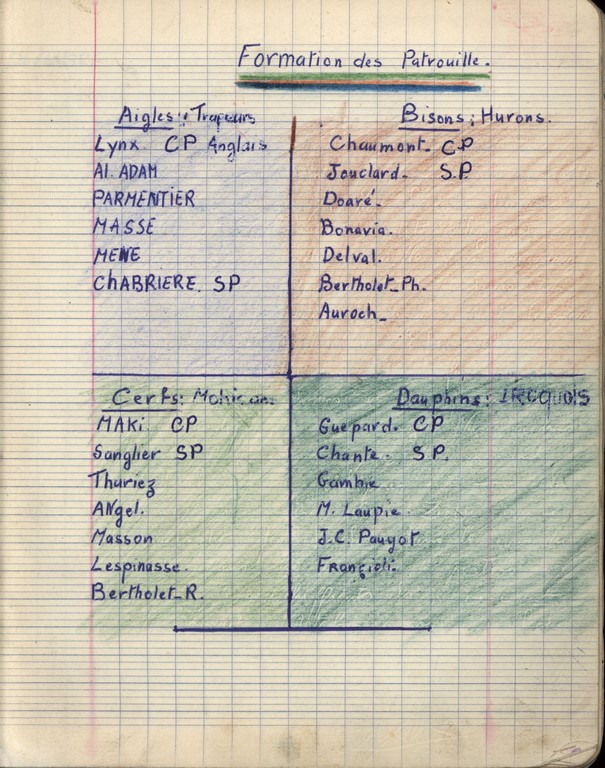 Formation des Patrouille.
Aigles: Trapeurs
Lynx. CP Anglais
Al. ADAM
PARMENTIER
MASSE
MENE
ChABRIERE. SP
Bisons: Hurons.
Chaumont. CP
Jouclard. S.P
Doaré.
Bonavia.
Delval.
Bertholet_Ph.
Auroch_
Cerfs:
MAKi. CP
Sanglier SP
Thuriez
ANgel.
Masson
Lespinasse.
Bertholet_R.
Dauphins: IROQUOIS
Guepard. CP
Chante. S.P.
Gambie
M. Laupie.
J.C. Paugot
Françioli.